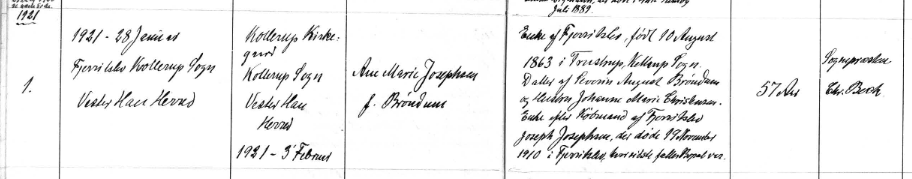 1921
Juli 1889
1.
1921 - 28 Januar
Fjerritslev Kollerup Sogn
Vester Han Herred
Kollerup Kirke-
gaard
Kollerup Sogn
Vester Han
Herred
1921 - 3' Februar
Ane Marie Josephsen
f. Brøndum
Enke af Fjerritslev, født 10 August
1863 i Trustrup, Kollerup Sogn.
Datter af Severin August Brøndum
og Hustru Johanne Marie Christensen.
Enke efter Købmand af Fjerritslev
Joseph Josephsen, der døde 19 November
1910 i Fjerritslev, hvor sidste fælles Bopæl var.
57 Aar
Sognepræsten
Chr. Beck